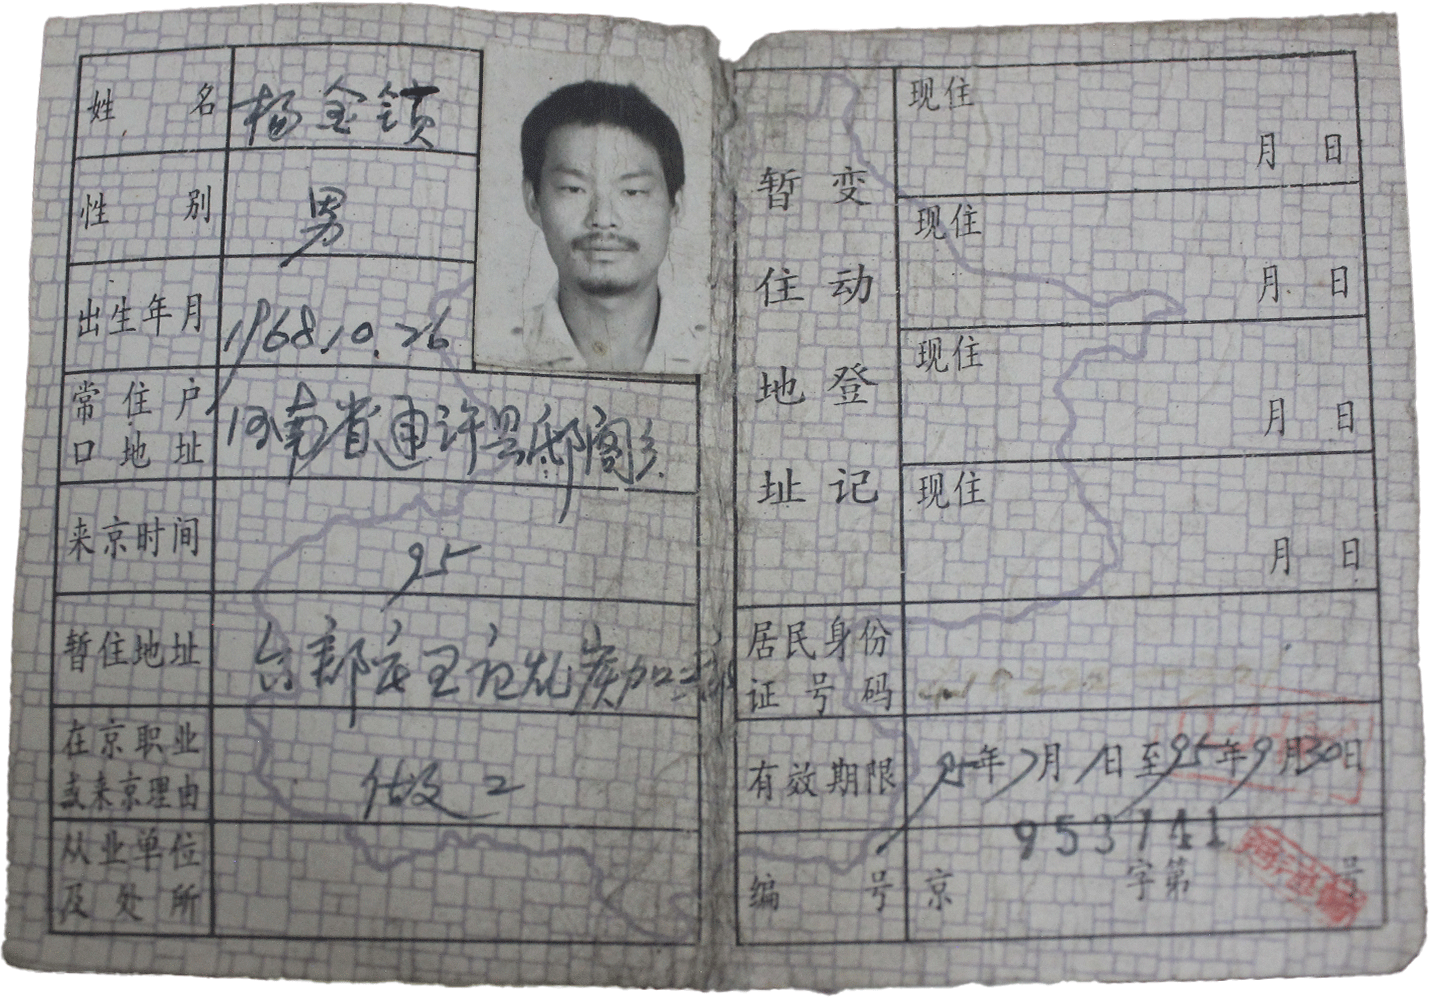 姓名 杨金锁
性别 男
出生年月 1968.10.26
常住户
口地址 河南省通许县邸阁乡
来京时间 95
暂住地址
在京职业
或来京理由 做工
从业单位
及处所
暂住地址
变动登记
现住
月 日
现住
月 日
现住
月 日
现住
月 日
居民身份
证号码
有效期限 95年7月1日至95年9月30日
953141
编号 京 字第 号